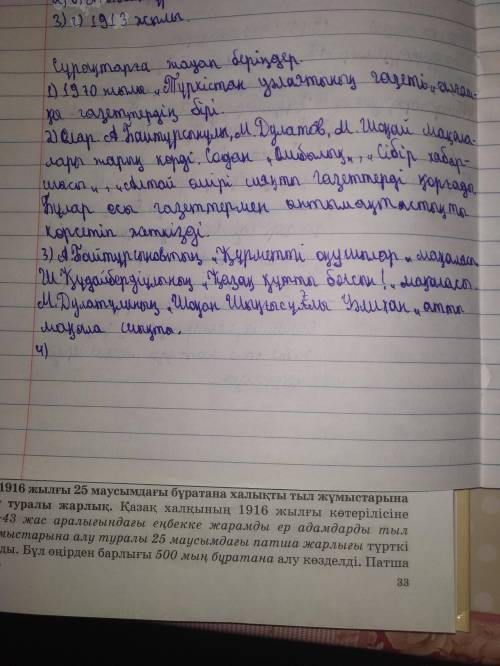 3) г) 1913 жылы.
Сұрақтарға жауап беріңдер.
1) 1970 жылы „Түркістан уалаятының газеті" алғаш-
қа газеттердің бірі.
2) Олар А.Байтұрсынұлы, М.Дулатов, М.Шоқай мақала-
лары жарық көрді. Содан „Омбылық", „Сібір хабар-
шысы", „Алтай өмірі сияқты газеттерді қорғады
Бұлар осы газеттермен ынтымақтастықты
көрсетіп хаткізді.
3) А.Байтұрсыновтың „Құрметті оқушылар" мақаласы
Ш.Құдайбердіұлының „Қазақ құтты болсын!" мақаласы.
М.Дулатұлының „Шоқан Шыңғысұлы Уәлихан" атты
мақала сияқты.
4)
1916 жылғы 25 маусымдағы бұратана халықты тыл жұмыстарына
туралы жарлық. Қазақ халқының 1916 жылғы көтерілісіне
-43 жас аралығындағы еңбекке жарамды ер адамдарды тыл
мыстарына алу туралы 25 маусымдағы патша жарлығы түрткі
лды. Бұл өңірден барлығы 500 мың бұратана алу көзделді. Патша
33